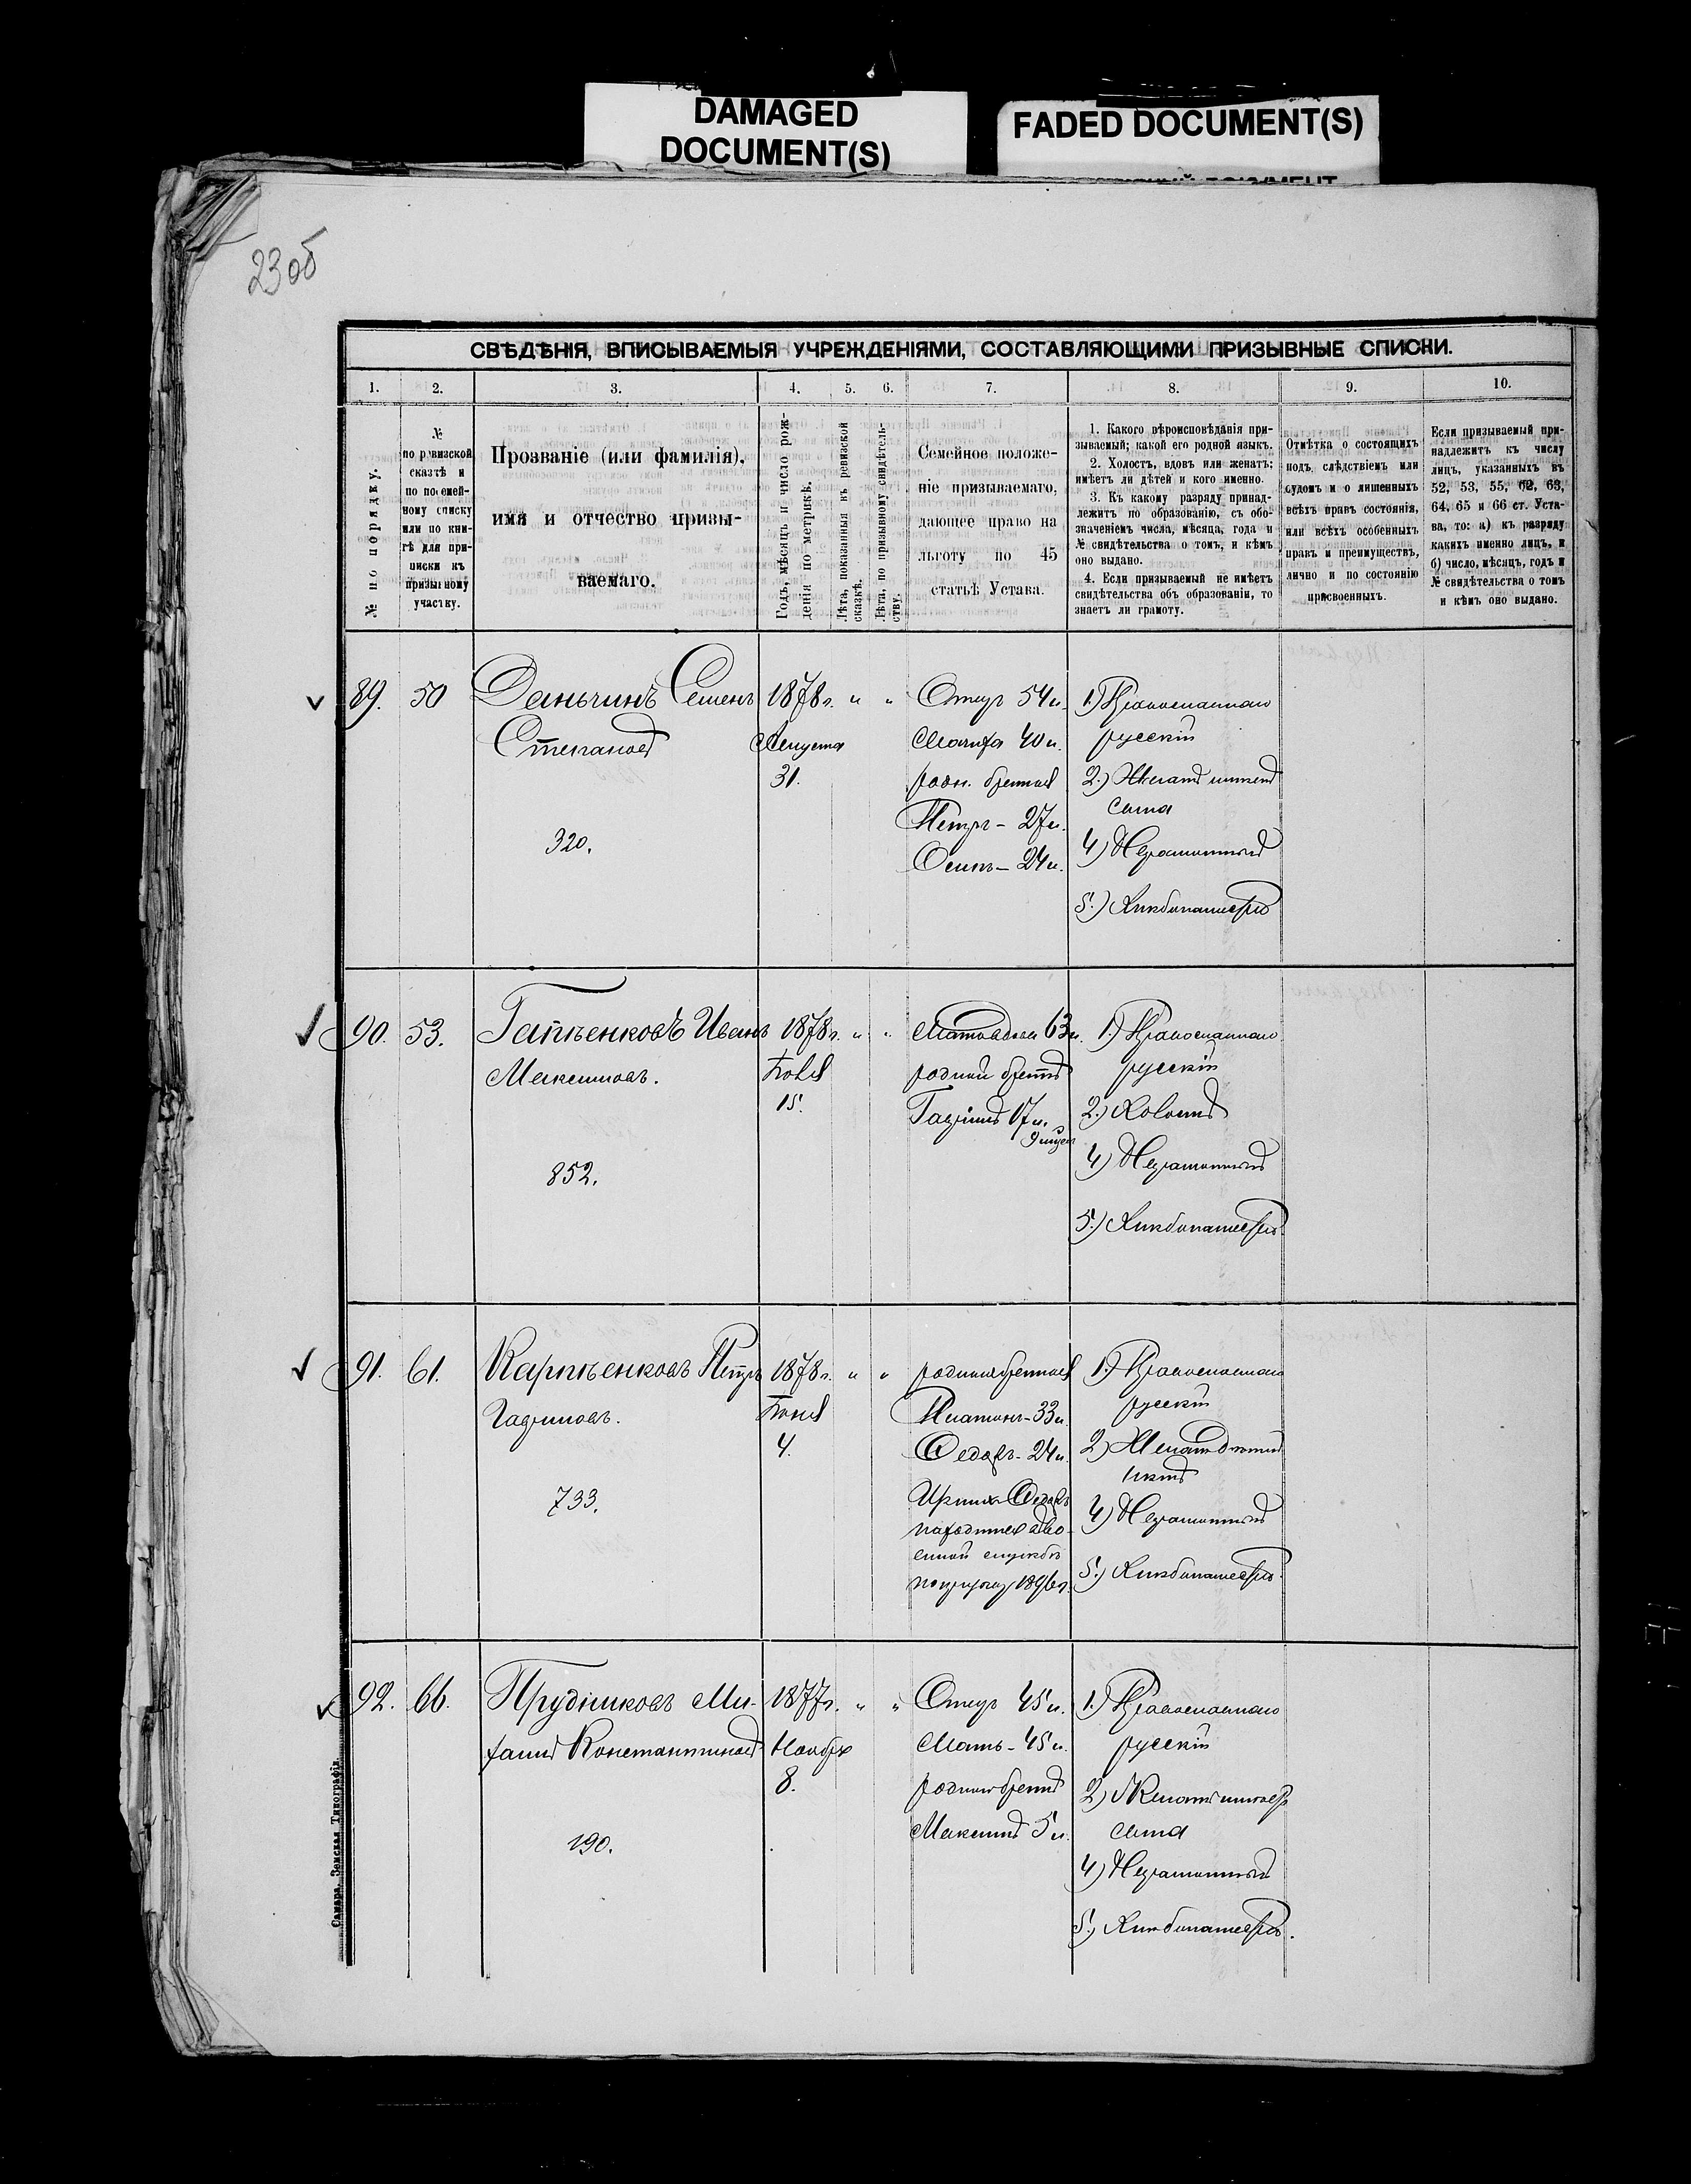 DAMAGED
DOCUMENT(S)
FADED DOCUMENT(S)
23об
СВѢДѢНІЯ, ВПИСЫВАЕМЫЯ УЧРЕЖДЕНІЯМИ, СОСТАВЛЯЮЩИМИ ПРИЗЫВНЫЕ СПИСКИ.
1. 2. 3. 4. 5. 6. 7. 8. 9. 10.
№ по порядку.
№
по ревизской
сказтѣ и
по посемей-
ному списку
или по кни-
гѣ для при-
писки къ
призывному
участку.
Прозваніе (или фамилія),
имя и отчество призы-
ваемаго.
Годъ, мѣсяцъ и число рож-
денія по метрикѣ.
Лѣта, показанныя въ ревизской
сказкѣ.
Лѣта, по призывному свидѣтель-
ству.
Семейное положе-
ніе призываемаго,
дающее право на
льготу по 45
статьѣ Устава.
1. Какого вѣроисповѣданія при-
зываемый; какой его родной языкъ.
2. Холостъ, вдовъ или женатъ;
имѣетъ ли дѣтей и кого именно.
3. Къ какому разряду принад-
лежитъ по образованію, съ обо-
значеніемъ числа, мѣсяца, года и
№ свидѣтельства о томъ, и кѣмъ
оно выдано.
4. Если призываемый не имѣетъ
свидѣтельства объ образованіи, то
знаетъ ли грамоту.
Отмѣтка о состоящихъ
подъ слѣдствіемъ или
судомъ и о лишенныхъ
всѣхъ правъ состоянія,
или всѣхъ особенныхъ
правъ и преимуществъ,
лично и по состоянію
присвоенныхъ.
Если призываемый при-
надлежитъ къ числу
лицъ, указанныхъ въ
52, 53, 55, 62, 63,
64, 65 и 66 ст. Уста-
ва, то: а) къ разряду
какихъ именно лицъ, и
б) число, мѣсяцъ, годъ и
№ свидѣтельства о томъ
и кѣмъ оно выдано.
89. 50 Даньчинъ Семенъ
Степановъ
320.
1878г. " "
Августа
31.
Отецъ 54л.
Мачиха 40л.
родн. братья
Петръ - 27л.
Осипъ - 24л.
1.) Православнаго
русскій
2.) Женатъ имѣетъ
сына
4) Неграмотный
5.) Хлѣбопашество
90. 53. Гапѣенковъ Иванъ
Максимовъ.
852.
1878г. " "
Іюля
15.
63л.
родной братъ
Гаврилъ 17л.
1.) Православнаго
русскій
2.) Холостъ
4) Неграмотный
5.) Хлѣбопашество
91. 61. Карпѣенковъ Петръ
Гавриловъ.
733.
1878г. " "
Іюня
4.
родные братья
Платонъ - 33л.
Федоръ - 24л.
Федоръ
находится въ во-
енной службѣ
1896г.
1.) Православнаго
русскій
2) Женатъ дѣтей
нѣтъ
4) Неграмотный
5.) Хлѣбопашество
92. 66. Прудниковъ Ми-
хаилъ Константиновъ
190.
1877г. " "
Ноября
8.
Отецъ 45л.
Мать - 45л.
родной братъ
Максимъ 5л.
1.) Православнаго
русскій
2) Женатъ имѣетъ
сына
4) Неграмотный
5.) Хлѣбопашество.
Самара. Земская Типографія.